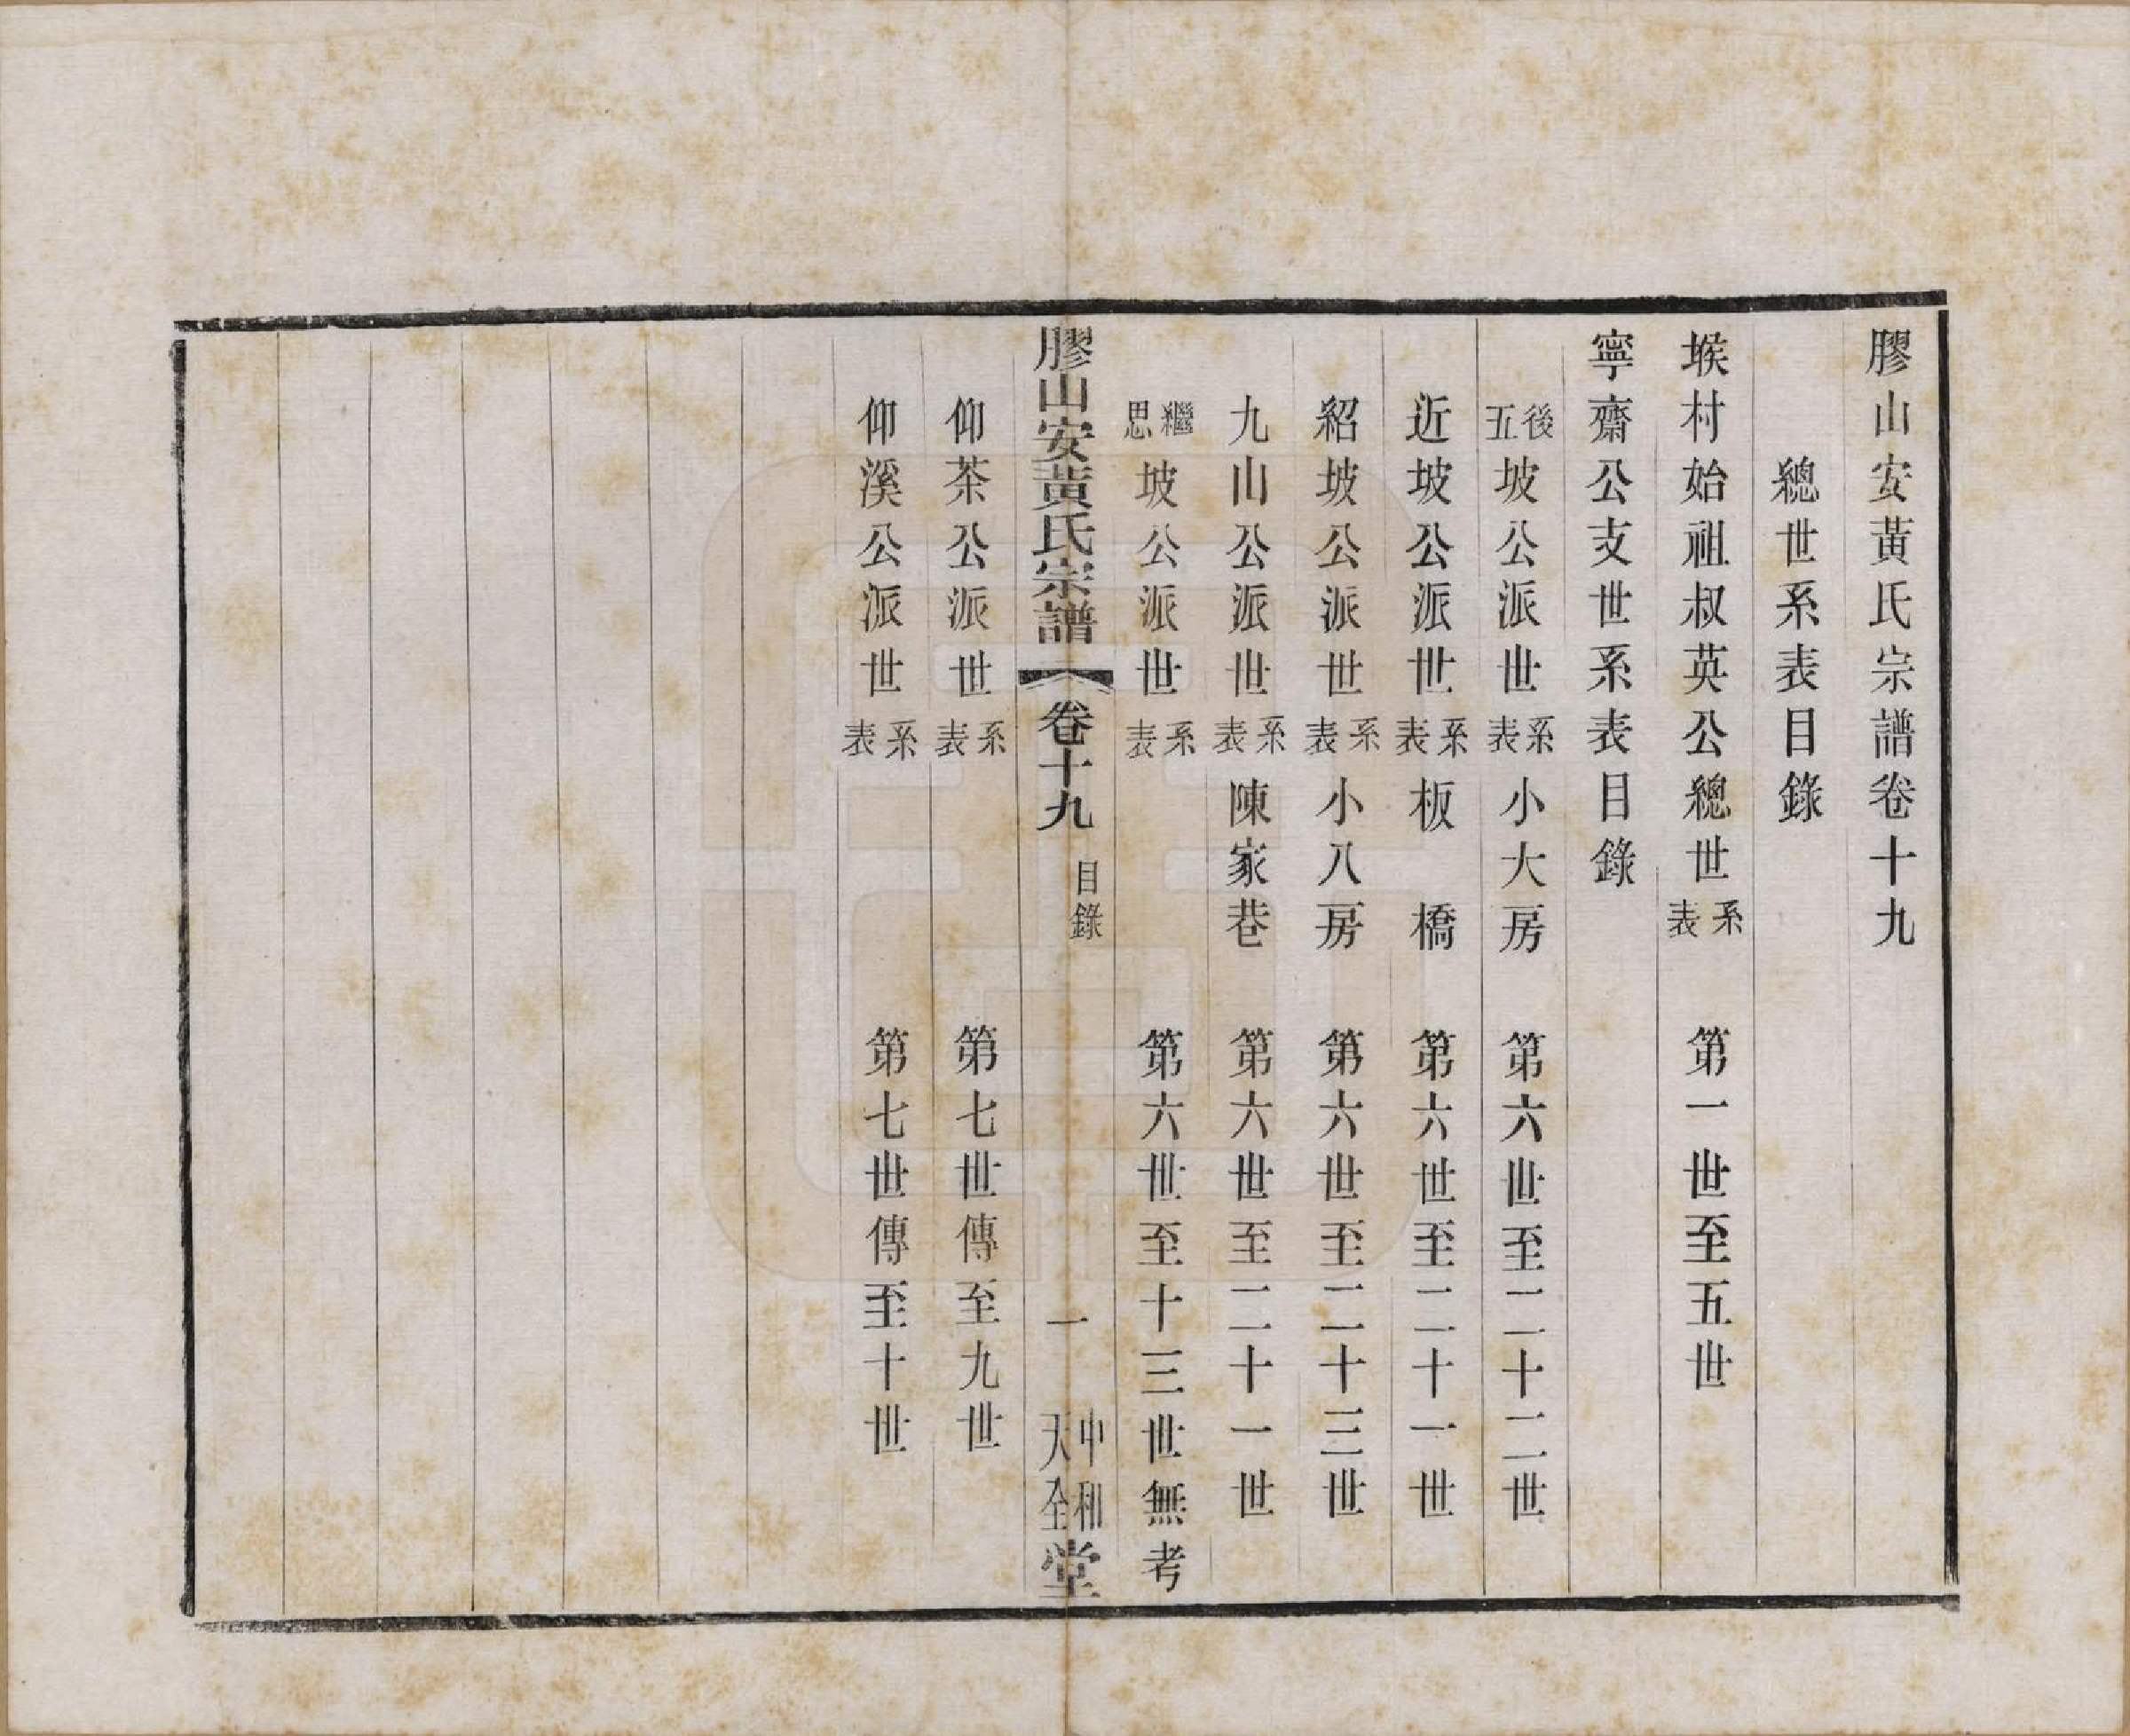 膠山安黃氏宗譜卷十九
總世系表目錄
堠村始祖叔英公總世系表 第一世至五世
寧齋公支世系表目錄
後五坡公派世系表 小大房 第六世至二十二世
近坡公派世系表 板橋 第六世至二十一世
紹坡公派世系表 小八房 第六世至二十三世
九山公派世系表 陳家巷 第六世至二十一世
繼思坡公派世系表 第六世至十三世無考
膠山安黄氏宗譜 卷十九 目錄 一 中和天全堂
仰茶公派世系表 第七世傳至九世
仰溪公派世系表 第七世傳至十世